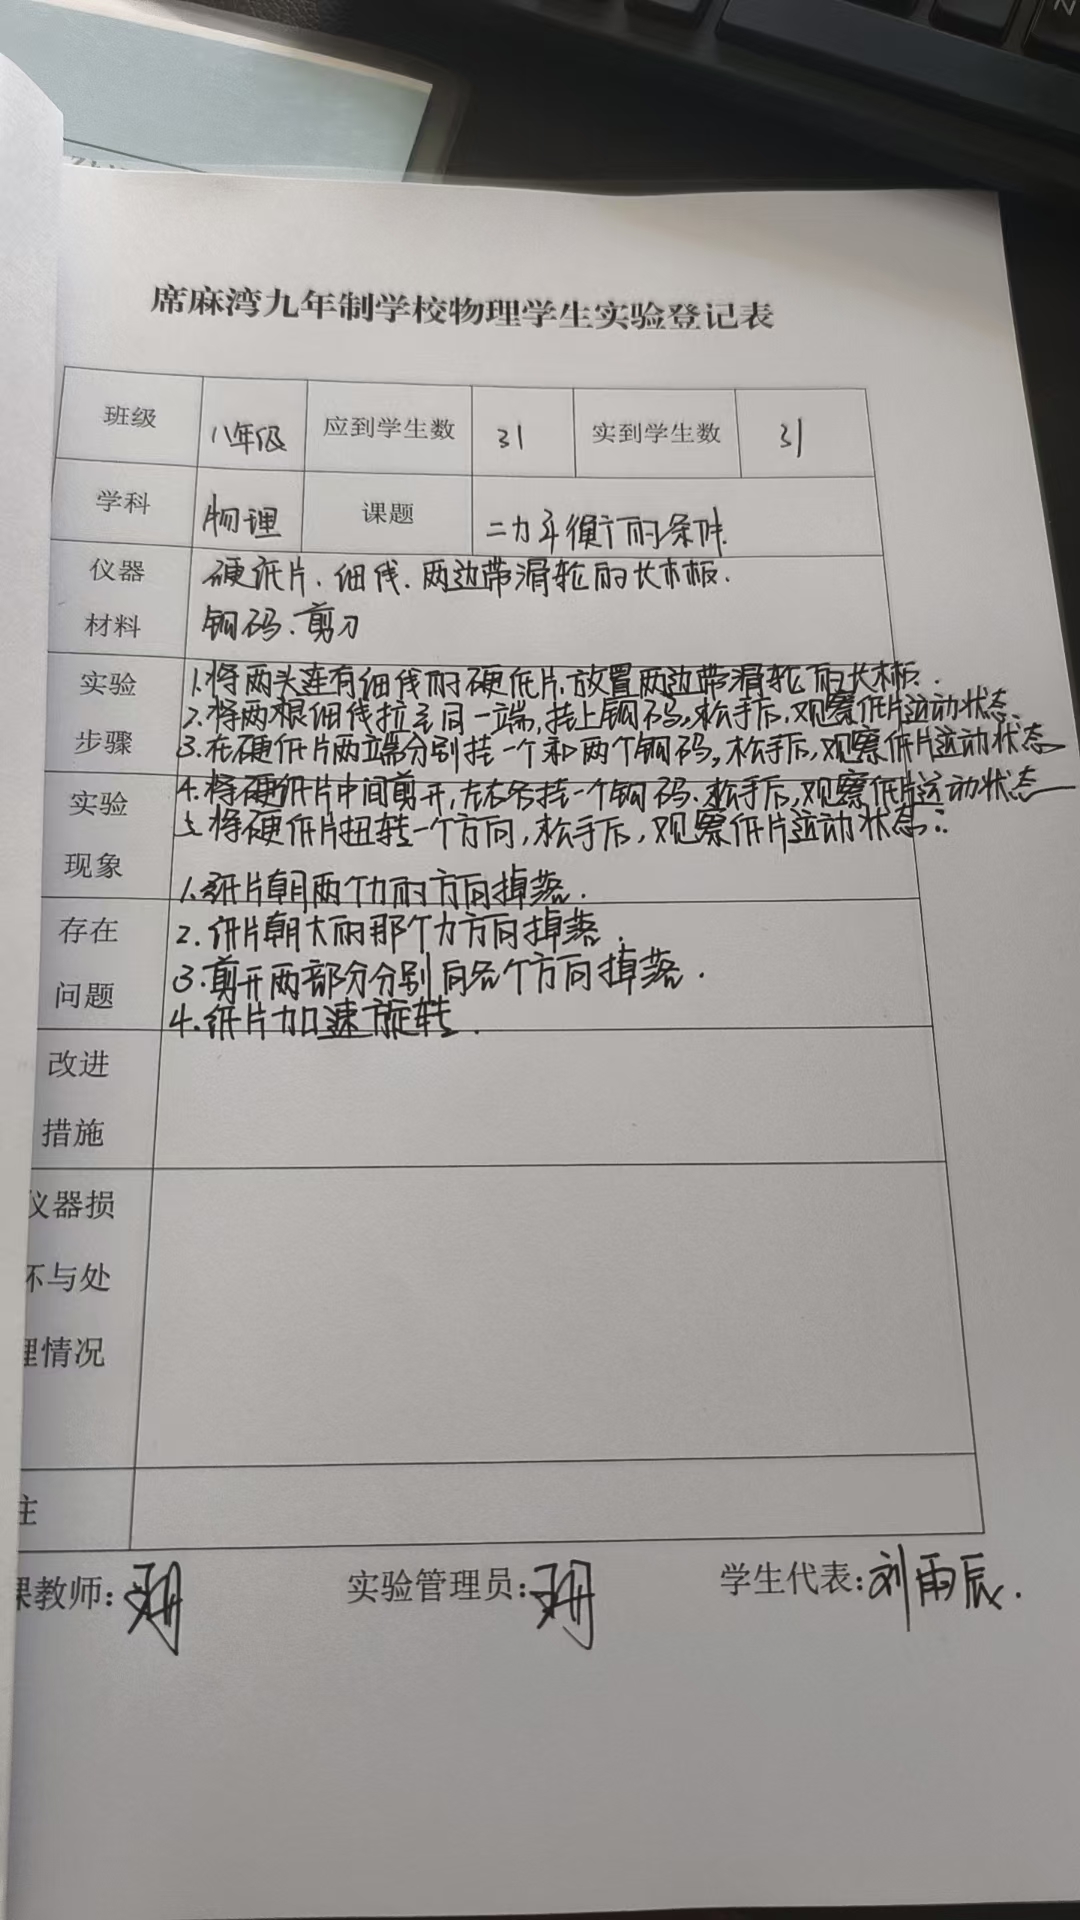 席麻湾九年制学校物理学生实验登记表
班级 八年级 应到学生数 31 实到学生数 31
学科 物理 课题 二力平衡的条件
仪器 硬纸片、细线、两边带滑轮的长木板、
材料 钩码、剪刀
实验 1.将两头连有细线的硬纸片,放置两边带滑轮的长木板.
2.将两根细线拉至同一端,挂上钩码,松手后,观察纸片运动状态
步骤 3.在硬纸片两端分别挂一个和两个钩码,松手后,观察纸片运动状态
实验 4.将硬纸片中间剪开,左右各挂一个钩码.松手后,观察纸片运动状态
5.将硬纸片扭转一个方向,松手后,观察纸片运动状态.
现象 1.纸片朝两个力的方向掉落.
存在 2.纸片朝大的那个力方向掉落.
问题 3.剪开两部分分别向各个方向掉落.
4.纸片加速旋转.
改进
措施
仪器损
坏与处
理情况
注
课教师: 实验管理员: 学生代表:刘雨辰.